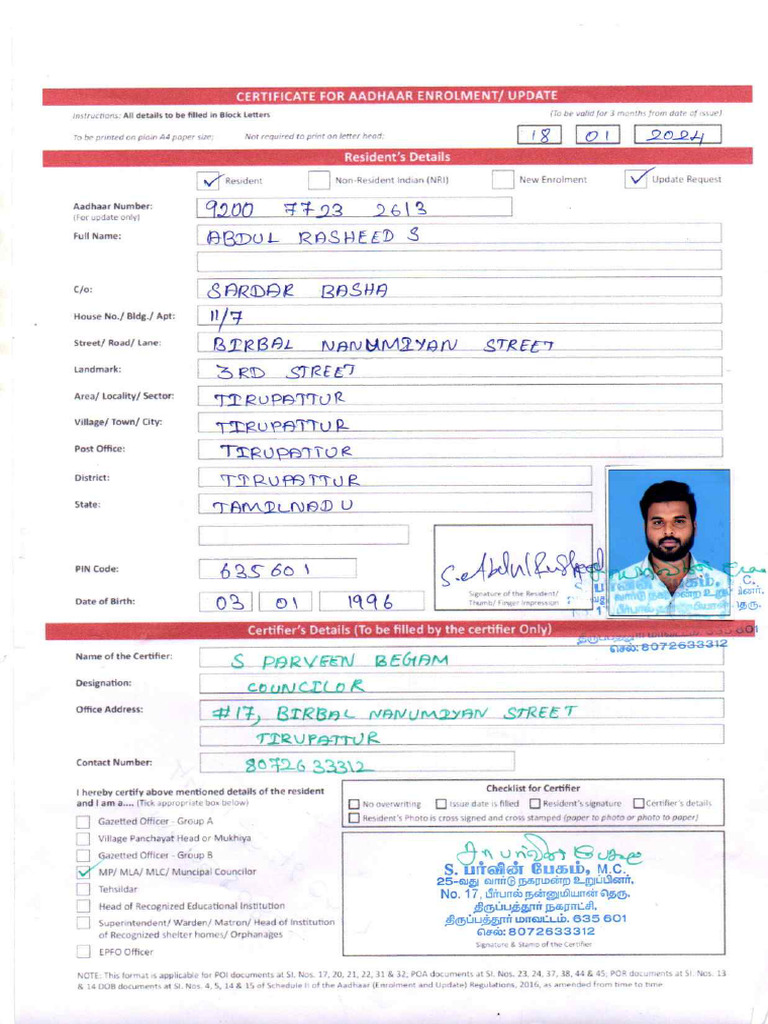 CERTIFICATE FOR AADHAAR ENROLMENT/ UPDATE
Instructions: All details to be filled in Block Letters (To be valid for 3 months from date of issue)
To be printed on plain A4 paper size; Not required to print on letter head; 18 01 2024
Resident's Details
Resident Non-Resident Indian (NRI) New Enrolment Update Request
Aadhaar Number: 9200 7723 2613
(For update only)
Full Name: ABDUL RASHEED S
C/o: SARDAR BASHA
House No./ Bldg./ Apt: 11/7
Street/ Road/ Lane: BIRBAL NANUMIYAN STREET
Landmark: 3RD STREET
Area/ Locality/ Sector: TIRUPATTUR
Village/ Town/ City: TIRUPATTUR
Post Office: TIRUPATTUR
District: TIRUPATTUR
State: TAMILNADU
PIN Code: 635601
S. Abdul Rasheed
Signature of the Resident/
Thumb/ Finger Impression
Date of Birth: 03 01 1996
Certifier's Details (To be filled by the certifier Only)
திருப்பத்தூர் மாவட்டம். 635 601
செல்: 8072633312
Name of the Certifier: S PARVEEN BEGAM
Designation: COUNCILOR
Office Address: #17, BIRBAL NANUMIYAN STREET
TIRUPATTUR
Contact Number: 8072633312
I hereby certify above mentioned details of the resident
and I am a.... (Tick appropriate box below)
Gazetted Officer - Group A
Village Panchayat Head or Mukhiya
Gazetted Officer - Group B
MP/ MLA/ MLC/ Muncipal Councilor
Tehsildar
Head of Recognized Educational Institution
Superintendent/ Warden/ Matron/ Head of Institution
of Recognized shelter homes/ Orphanages
EPFO Officer
Checklist for Certifier
No overwriting Issue date is filled Resident's signature Certifier's details
Resident's Photo is cross signed and cross stamped (paper to photo or photo to paper)
சா பர்வின் பேகம்
S. பர்வின் பேகம், M.C.
25-வது வார்டு நகரமன்ற உறுப்பினர்.
No. 17, பீர்பால் நன்னுமியான் தெரு.
திருப்பத்தூர் நகராட்சி.
திருப்பத்தூர் மாவட்டம். 635 601
செல்: 8072633312
Signature & Stamp of the Certifier
NOTE: This format is applicable for POI documents at Sl. Nos. 17, 20, 21, 22, 31 & 32, POA documents at Sl. Nos. 23, 24, 37, 38, 44 & 45, POR documents at Sl. Nos. 13
& 14 DOB documents at Sl. Nos. 4, 5, 14 & 15 of Schedule II of the Aadhaar (Enrolment and Update) Regulations, 2016, as amended from time to time